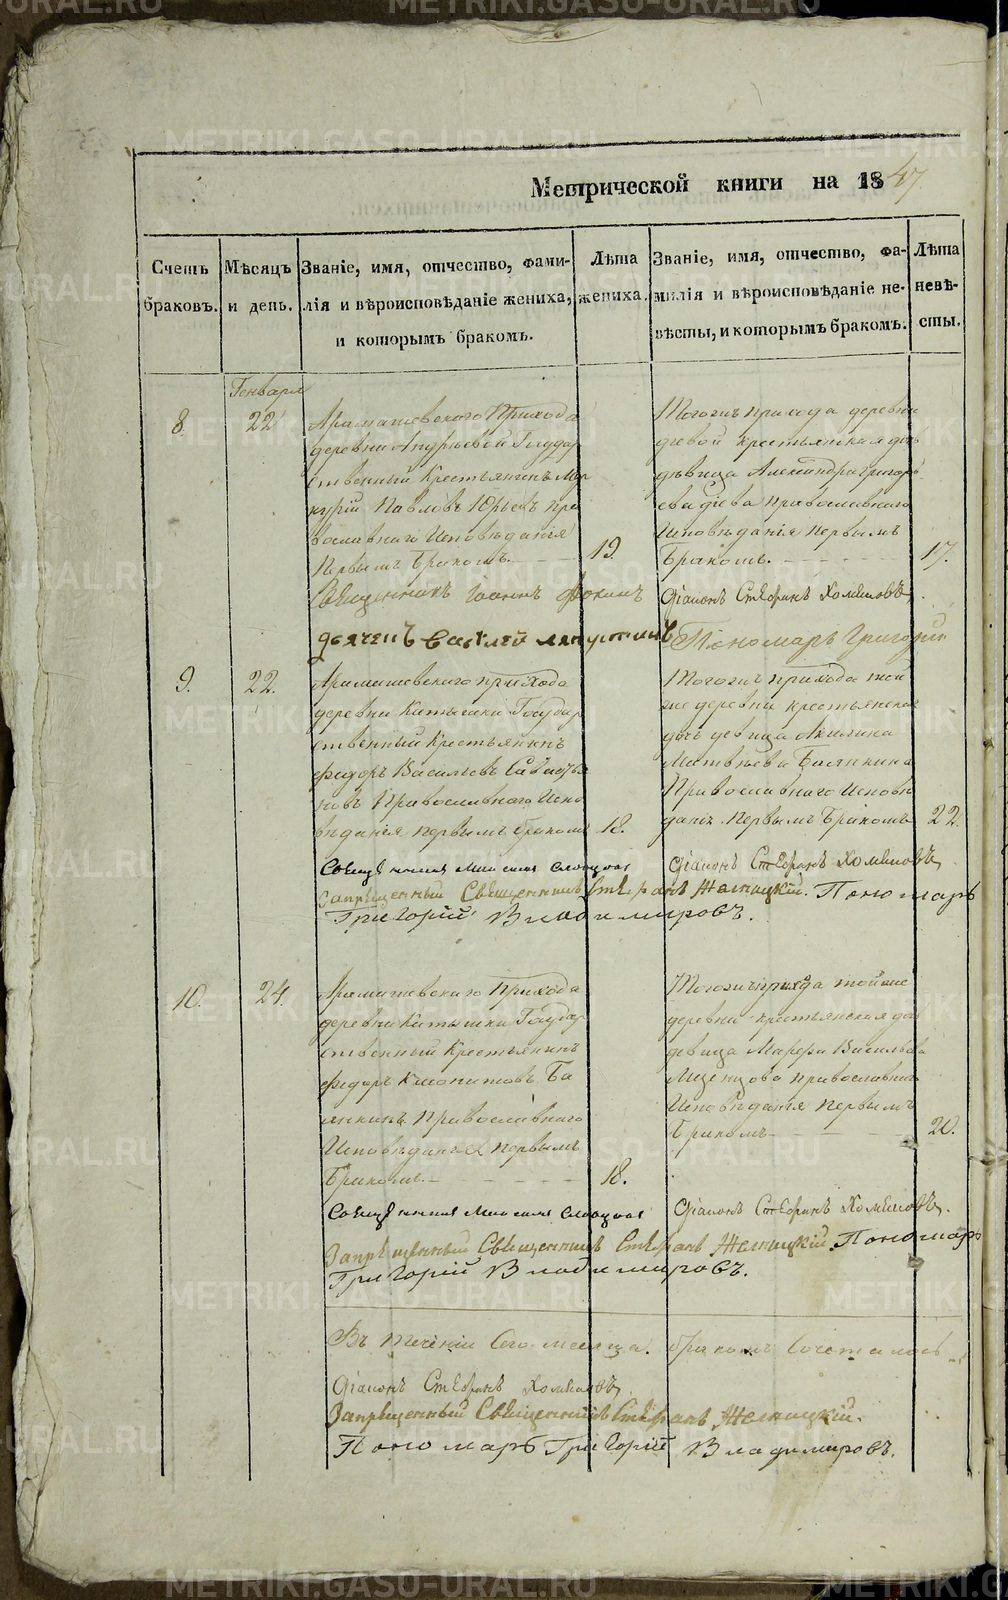 METRIKI.GASO-URAL.RU
Метрической книги на 1847.
Счетъ браковъ.
Мѣсяцъ и день.
Званіе, имя, отчество, фами-
лія и вѣроисповѣданіе жениха,
и которымъ бракомъ.
Лѣта
жениха.
Званіе, имя, отчество, фа-
милія и вѣроисповѣданіе не-
вѣсты, и которымъ бракомъ.
Лѣта
невѣ-
сты.
Генваря
8.
22
Арамашевскаго Прихода
деревни Андрѣевой Государ
ственный Крестьянинъ Мер
курій Павловъ Юрьевъ пра
вославнаго Исповѣданія
Первымъ Бракомъ.
19.
Тогожъ прихода деревни
крестьянская дочь
дѣвица Александра Григорь
ева Православнаго
Исповѣданія первымъ
Бракомъ.
17.
Священникъ Іоаннъ Фокинъ
Діаконъ Стефанъ Хомяковъ
дьячекъ Василей
Пономарь Григорій
9.
22.
Арамашевскаго прихода
деревни Катышки Государ
ственный Крестьянинъ
Федоръ Васильевъ
новъ Православнаго Испо
вѣданія первымъ бракомъ
18.
Тогожъ прихода той
же деревни крестьянская
дочь девица Акилина
Матвѣева Балякина
Православнаго Исповѣ
данія первымъ Бракомъ
22.
Священникъ
Діаконъ Стефанъ Хомяковъ
Запрещенный Священникъ Стефанъ Желницкій. Пономарь
Григорій Владимировъ.
10.
24.
Арамашевскаго Прихода
деревни Катышки Государ
ственный Крестьянинъ
Федоръ Ба
лякинъ Православнаго
Исповѣданія первымъ
Бракомъ.
18.
Тогожъ прихода тойже
деревни крестьянская дочь
девица Марфа Васильева
православнаго
Исповѣданія первымъ
Бракомъ
20.
Священникъ
Діаконъ Стефанъ Хомяковъ.
Запрещенный Священникъ Стефанъ Желницкій. Пономарь
Григорій Владимировъ.
Въ теченіи Сего месяца. бракомъ Сочеталось
Діаконъ Стефанъ Хомяковъ.
Запрещенный Священникъ Стефанъ Желницкій.
Пономарь Григорій Владимировъ.